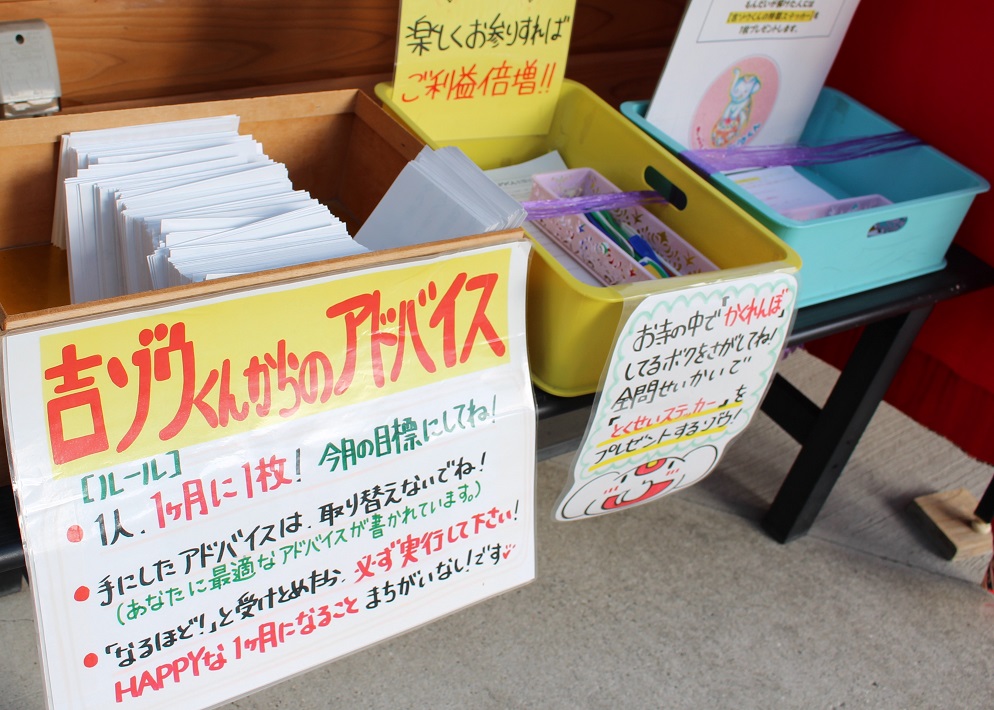 楽しくお参りすれば
ご利益倍増!!
もんだいが解けた人には
『吉ゾウくんの特製ステッカー』を
1枚プレゼントします。
吉ゾウくんからのアドバイス
[ルール]
● 1人、1ヶ月に1枚! 今月の目標にしてね!
● 手にしたアドバイスは、取り替えないでね!
(あなたに最適なアドバイスが書かれています。)
● 「なるほど!」と受けとめたら、必ず実行して下さい!
HAPPYな1ヶ月になること まちがいなし!です
お寺の中で『かくれんぼ』
してるボクをさがしてね!
全問せいかいで
『とくせいステッカー』を
プレゼントするゾウ!